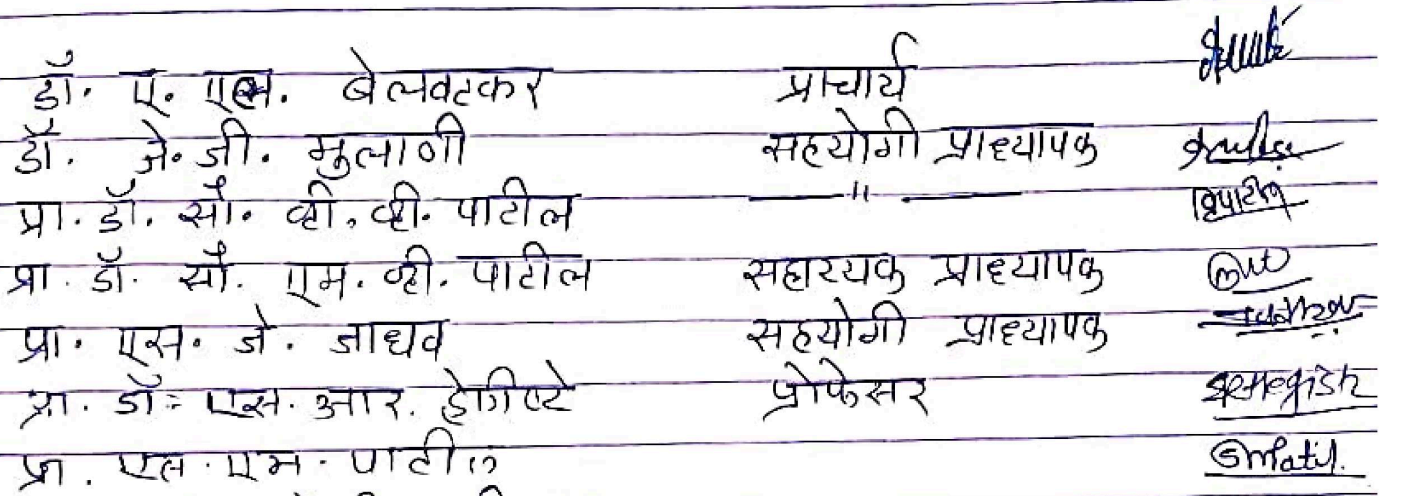 डॉ. ए. एम. बेलवटकर प्राचार्य
डॉ. जे. जी. मुलाणी सहयोगी प्राध्यापक
प्रा. डॉ. सौ. व्ही. व्ही. पाटील —"— व्हिपाटील
प्रा. डॉ. सौ. एम. व्ही. पाटील सहाय्यक प्राध्यापक
प्रा. एस. जे. जाधव सहयोगी प्राध्यापक
प्रा. डॉ. एस. आर. हेगिष्टे प्रोफेसर
प्रा. एल. एम. पाटील Smpatil.